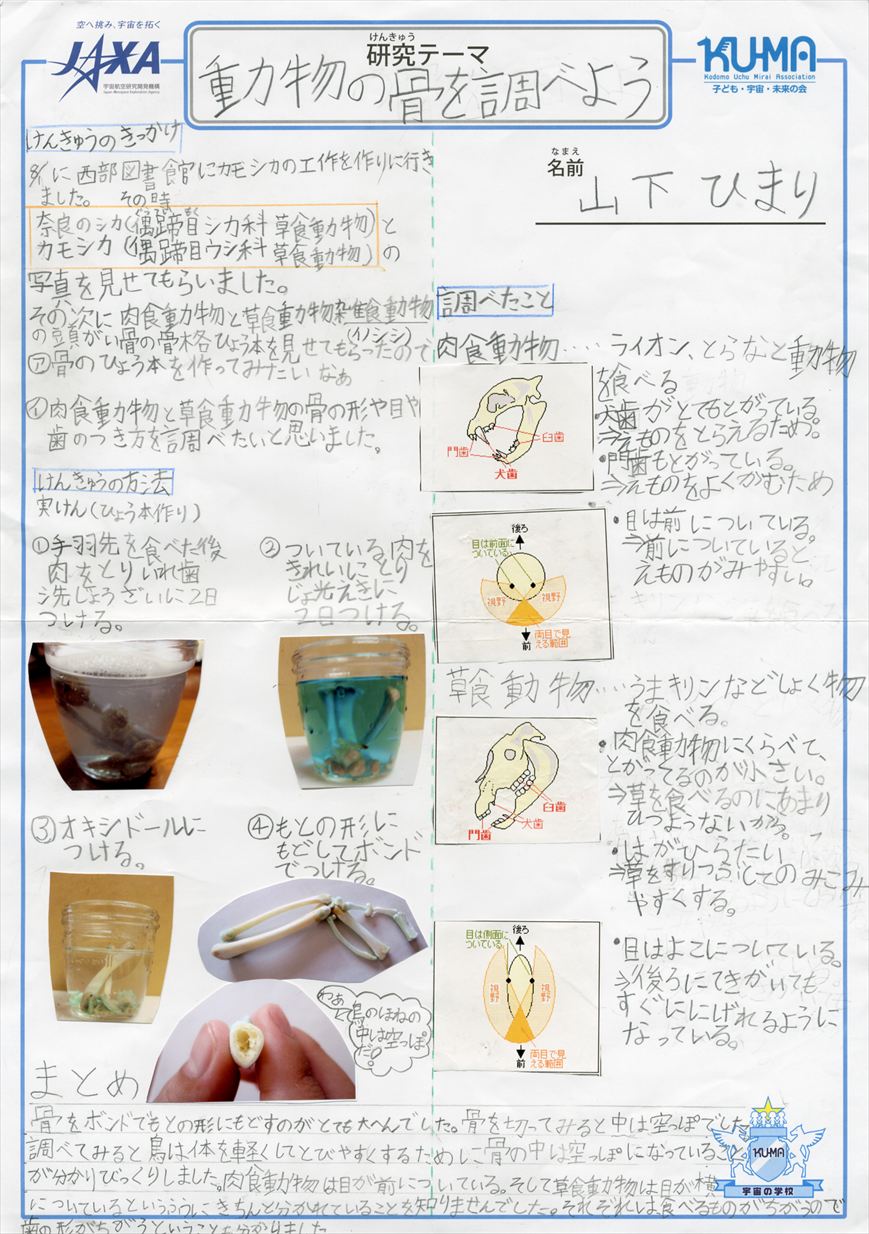 空へ挑み、宇宙を拓く
JAXA
宇宙航空研究開発機構
Japan Aerospace Exploration Agency
けんきゅう
研究テーマ
動物の骨を調べよう
KU-MA
Kodomo Uchu Mirai Association
子ども・宇宙・未来の会
なまえ
名前
山下 ひまり
けんきゅうのきっかけ
に西部図書館にカモシカの工作を作りに行き
ました。 その時
奈良のシカ(偶蹄目シカ科 草食動物)と
カモシカ (偶蹄目ウシ科 草食動物)の
写真を見せてもらいました。
その次に肉食動物と草食動物雑食動物
(イノシシ)
の頭がい骨の骨格ひょう本を見せてもらったので
㋐骨のひょう本を作ってみたいなぁ
㋑肉食動物と草食動物の骨の形や目や
歯のつき方を調べたいと思いました。
けんきゅうの方法
実けん(ひょう本作り)
①手羽先を食べた後
肉をとりいれ歯
洗じょうざいに2日
つける。
②ついている肉を
きれいにとり
じょ光えきに
2日つける。
③オキシドールに
つける。
④もとの形に
もどしてボンド
でつける。
わぁ
鳥のほねの
中は空っぽ
だ!
調べたこと
肉食動物‥‥ライオン、とらなど動物
を食べる
・犬歯がとてもとがっている。
⇒えものをとらえるため。
・門歯もとがっている。
⇒えものをよくかむため
門歯
臼歯
犬歯
・目は前についている。
⇒前についていると
えものがみやすい。
後ろ
目は前面に
ついている
視野
視野
両目で見
える範囲
前
草食動物‥‥うまキリンなどしょく物
を食べる。
・肉食動物にくらべて、
とがってるのが小さい。
⇒草を食べるのにあまり
ひつようないから。
・はがひらたい
⇒草をすりつぶしてのみこみ
やすくする。
臼歯
犬歯
門歯
・目はよこについている。
⇒後ろにてきがいても
すぐににげれるように
なっている。
後ろ
目は側面に
ついている
視野
視野
両目で見
える範囲
前
まとめ
骨をボンドでもとの形にもどすのがとても大へんでした。骨を切ってみると中は空っぽでした
調べてみると鳥は体を軽くしてとびやすくするために骨の中は空っぽになっていること
が分かりびっくりしました。肉食動物は目が前についている。そして草食動物は目が横
についているというふうにきちんと分かれていることを知りませんでした。それぞれは食べるものがちがうので
歯の形がちがうということも分かりました
KU-MA
宇宙の学校